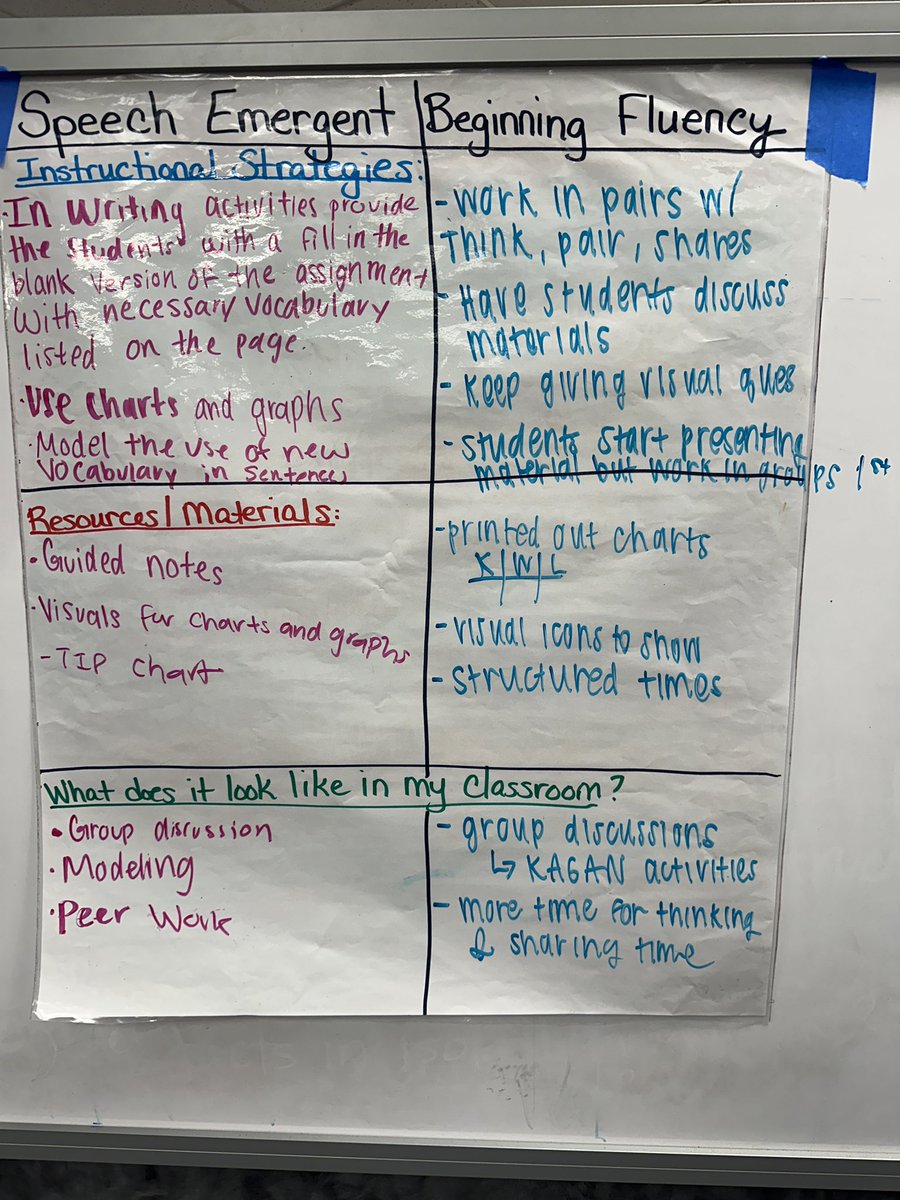 Speech Emergent
Instructional Strategies:
·In Writing activities provide
the students with a fill in the
blank version of the assignment
with necessary vocabulary
listed on the page.
·Use charts and graphs
·Model the use of new
vocabulary in sentences
Beginning Fluency
-work in pairs w/
think, pair, shares
-Have students discuss
materials
-keep giving visual ques
-students start presenting
material but work in groups 1st
Resources/Materials:
·Guided notes
·Visuals for charts and graphs
-TIP chart
-printed out charts
K/W/L
-visual icons to show
-structured times
What does it look like in my classroom?
·Group discussion
·Modeling
·Peer work
-group discussions
↳ KAGAN activities
-more time for thinking
& sharing time